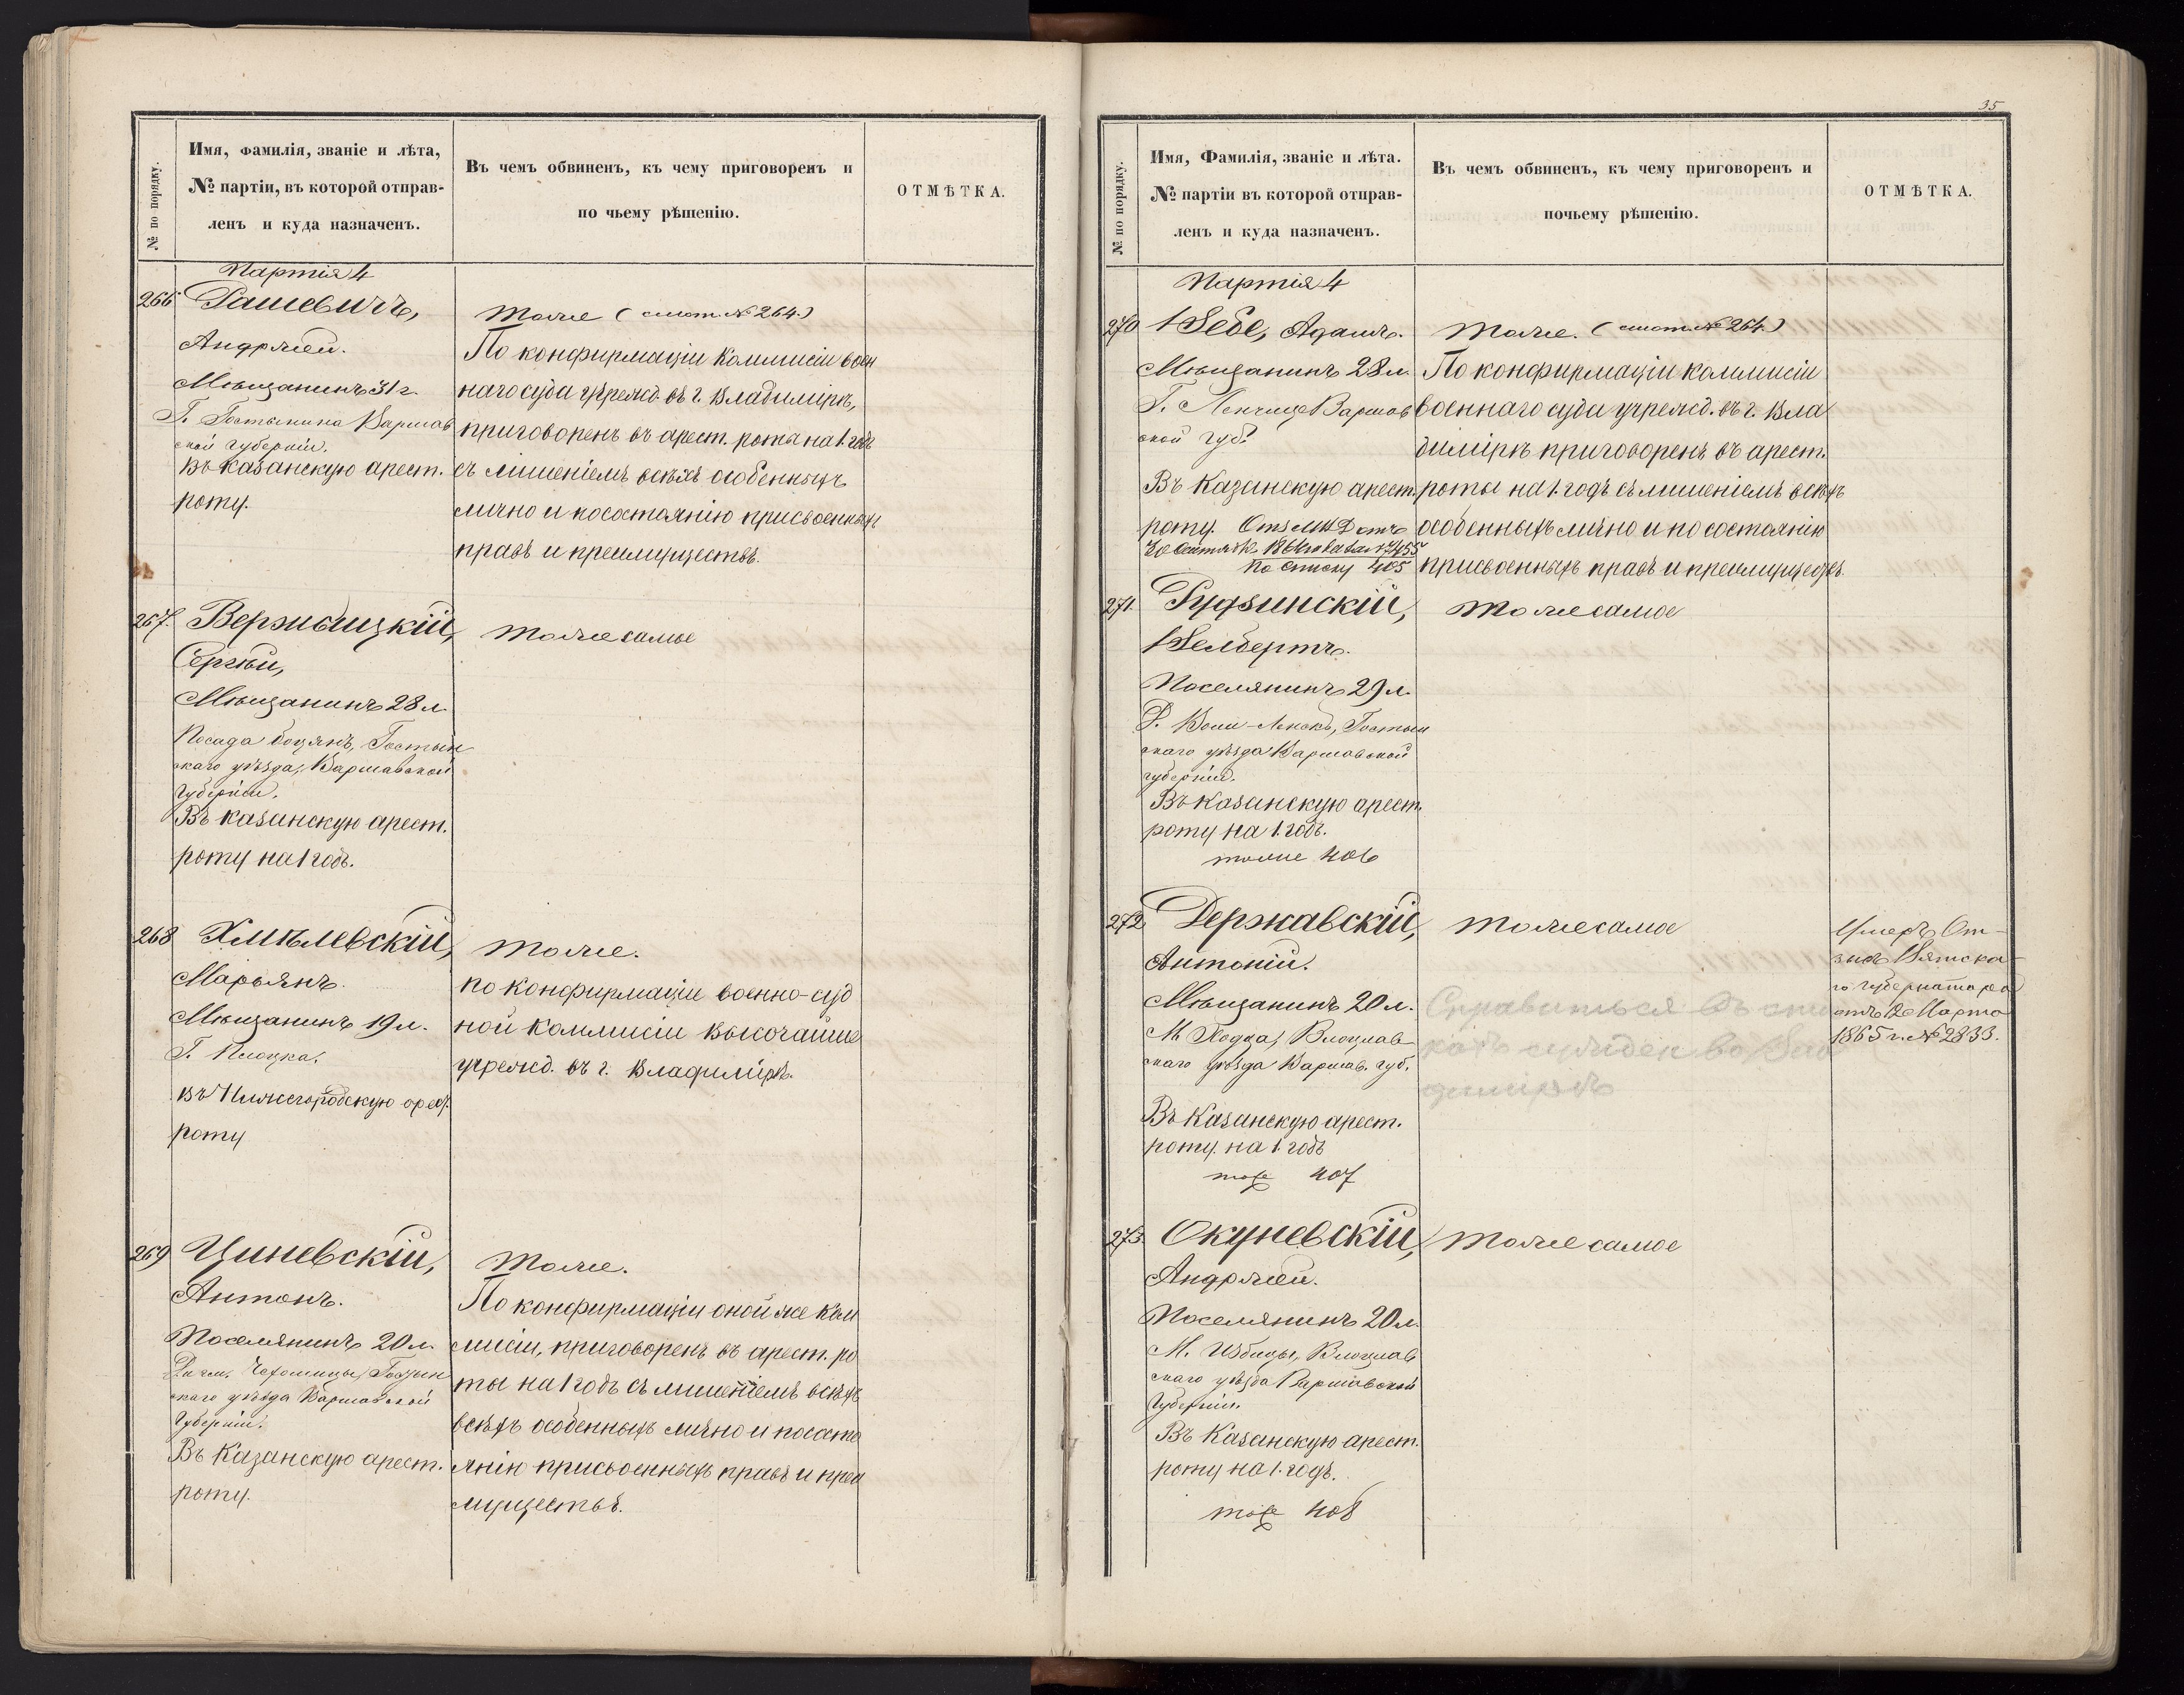 № по порядку.
Имя, Фамилія, званіе и лѣта,
№ партіи, въ которой отправ-
ленъ и куда назначенъ.
Въ чемъ обвиненъ, къ чему приговоренъ и
по чьему рѣшенію.
ОТМѢТКА.
Партія 4
266 Гашевичъ,
Андржей.
Мѣщанинъ 31 г.
Г. Гостынина Варшав
ской губерніи.
Въ казанскую арест.
роту.
Тоже (смот. № 264.)
По конфирмаціи коммисіи воен
наго суда учрежд. въ г. Владимірѣ,
приговоренъ въ арест. роты на 1. годъ
съ лишеніемъ всѣхъ особенныхъ
лично и по состоянію присвоенныхъ
правъ и преимуществъ.
267. Вержбицкій,
Сергѣй,
Мѣщанинъ 28 л.
Посада Гостын
скаго уѣзда, Варшавской
губерніи.
Въ казанскую арест.
роту на 1 годъ.
тоже самое
268 Хмѣлевскій,
Марьянъ.
Мѣщанинъ 19 л.
Г. Плоцка.
въ Нижегородскую арест.
роту
тоже.
по конфирмаціи военно-суд
ной коммисіи высочайше
учрежд. въ г. Владимірѣ.
269 Циневскій,
Антонъ.
Поселянинъ 20 л.
Гостын
скаго уѣзда Варшавской
Губерніи.
Въ Казанскую арест.
роту.
тоже.
По конфирмаціи оной же ком
мисіи, приговоренъ въ арест. ро
ты на 1 годъ съ лишеніемъ всѣхъ
всѣхъ особенныхъ лично и по состо
янію присвоенныхъ правъ и преи
муществъ.
35
№ по порядку.
Имя, Фамилія, званіе и лѣта.
№ партіи въ которой отправ-
ленъ и куда назначенъ.
Въ чемъ обвиненъ, къ чему приговоренъ и
почьему рѣшенію.
ОТМѢТКА.
Партія 4
270 Адамъ.
Мѣщанинъ 28 л.
Г. Ленчице Варшав
ской губ.
Въ Казанскую арест.
роту.
по списку 405
Тоже. (смот. № 264.)
По конфирмаціи коммисіи
военнаго суда учрежд. въ г. Вла
димірѣ приговоренъ въ арест.
роты на 1. годъ съ лишеніемъ всѣхъ
особенныхъ лично и по состоянію
присвоенныхъ правъ и преимуществъ.
271. Гудзинскій,
Поселянинъ 29 л.
Гостын
скаго уѣзда Варшавской
губерніи.
Въ казанскую арест.
роту на 1. годъ.
тоже 406
тоже самое
272 Державскій,
Антоній.
Мѣщанинъ 20 л.
М. Ходча, Влоцлав
скаго уѣзда Варшав. губ.
Въ Казанскую арест.
роту. на 1. годъ
тоже 407
тоже самое
Справиться въ
Умеръ От-
зывъ Вятска-
го губернатора
отъ 12 Марта
1865 г. № 2833.
273. Окуневскій,
Андржей.
Поселянинъ 20 л.
М. Избицы, Влоцлав
скаго уѣзда Варшавской
Губерніи.
Въ Казанскую арест.
роту на 1. годъ.
тоже 408
тоже самое